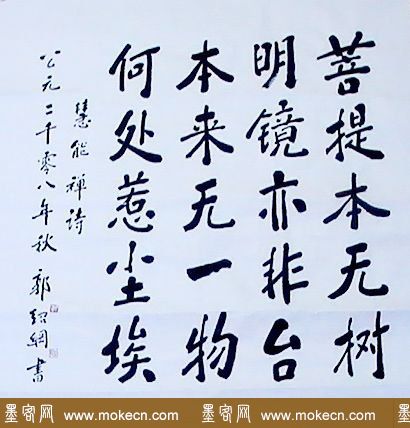 菩提本无树
明镜亦非台
本来无一物
何处惹尘埃
慧能禅诗
公元二千零八年秋 郭绍纲书
墨客网 www.mokecn.com 墨客网 www.mokecn.com 墨客网